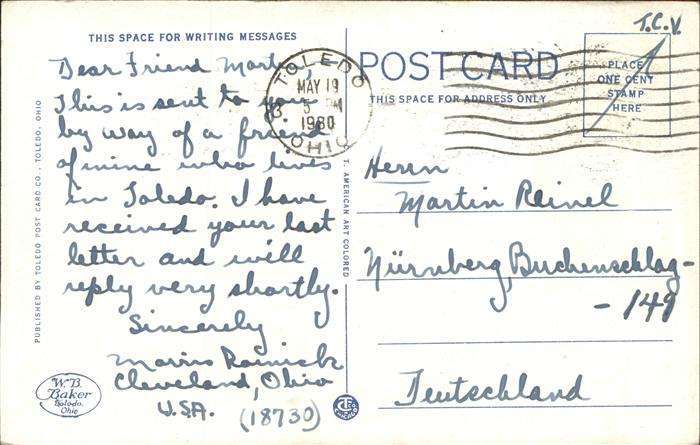 T.C.V.
THIS SPACE FOR WRITING MESSAGES
Dear Friend Martin,
This is sent to you
by way of a friend
of mine who lives
in Toledo. I have
received your last
letter and will
reply very shortly.
Sincerely
Morris
Cleveland, Ohio
U.S.A. (18730)
W.B.
Baker
Toledo,
Ohio
PUBLISHED BY TOLEDO POST CARD CO., TOLEDO, OHIO
TOLEDO
MAY 19
5 PM
1930
OHIO
POST CARD
THIS SPACE FOR ADDRESS ONLY
PLACE
ONE CENT
STAMP
HERE
C. T. AMERICAN ART COLORED
Herrn
Martin Reinel
Nürnberg, Buchenschlag-
- 149
Deutschland